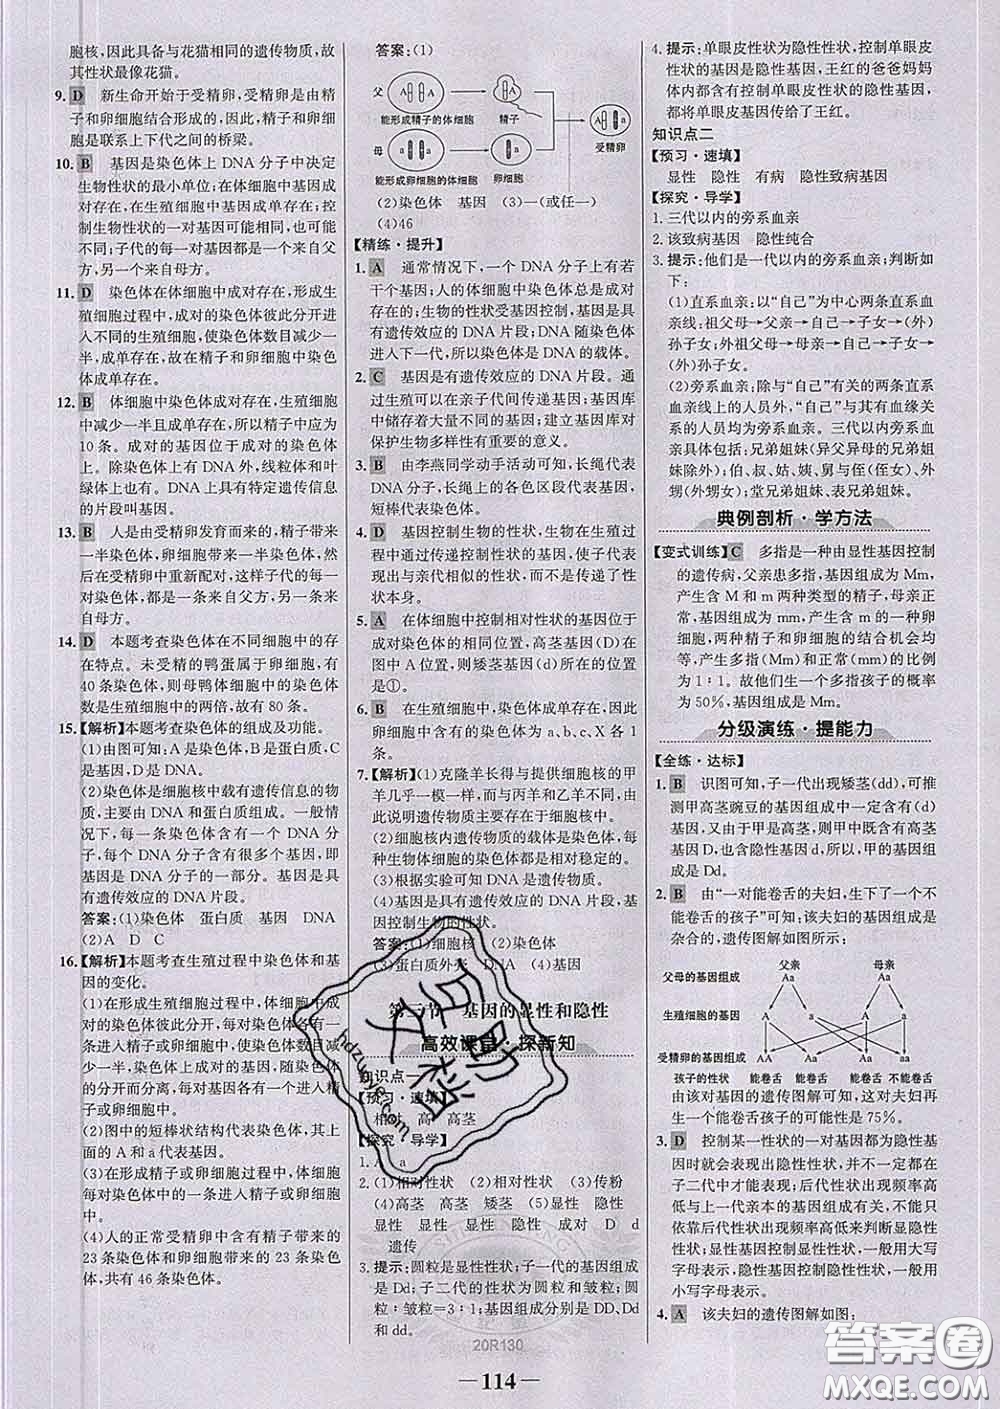 胞核,因此具备与花猫相同的遗传物质,故
其性状最像花猫。
9. D 新生命开始于受精卵,受精卵是由精
子和卵细胞结合形成的,因此,精子和卵细
胞是联系上下代之间的桥梁。
10. B 基因是染色体上 DNA 分子中决定
生物性状的最小单位;在体细胞中基因成
对存在,在生殖细胞中基因成单存在;控制
生物性状的一对基因可能相同,也可能
不同;子代的每一对基因一个来自父
方,另一个来自母方。
11. D 染色体在体细胞中成对存在,形成生
殖细胞过程中,成对的染色体彼此分开进
入不同的生殖细胞,使染色体数目减少一
半,成单存在,故在精子和卵细胞中染色
体成单存在。
12. B 体细胞中染色体成对存在,生殖细胞
中减少一半且成单存在,所以精子中应为
10 条。成对的基因位于成对的染色体
上。除染色体上有 DNA 外,线粒体和叶
绿体上也有。DNA 上具有特定遗传信息
的片段叫基因。
13. B 人是由受精卵发育而来的,精子带来
一半染色体,卵细胞带来一半染色体,然
后在受精卵中重新配对,这样子代的每一
对染色体,都是一条来自父方、另一条来
自母方。
14. D 本题考查染色体在不同细胞中的存
在特点。未受精的鸭蛋属于卵细胞,有
40 条染色体,则母鸭体细胞中的染色体
数是生殖细胞中的两倍,故有 80 条。
15.【解析】本题考查染色体的组成及功能。
(1)由图可知:A 是染色体,B 是蛋白质,C
是基因,D 是 DNA。
(2)染色体是细胞核中载有遗传信息的物
质,主要由 DNA 和蛋白质组成。一般情
况下,每一条染色体上包含一个 DNA 分
子,每个 DNA 分子含有很多个基因,即
基因是 DNA 分子的一部分。基因是具
有遗传效应的 DNA 片段。
答案:(1)染色体 蛋白质 基因 DNA
(2)A D C
16.【解析】本题考查生殖过程中染色体和基
因的变化。
(1)在形成生殖细胞过程中,体细胞中成
对的染色体彼此分开,每对染色体各有一
条进入每一个生殖细胞,使染色体数目减
少一半。染色体上成对的基因,随染色体
的分开而分离,各随一条染色体进入精子
或卵细胞中。
(2)图中的短棒状结构代表染色体,其上
面的 A 和 a 代表基因。
(3)在形成精子或卵细胞过程中,体细胞
每对染色体中的一条进入精子或卵细胞
中。
(4)人的正常受精卵中含有精子带来的
23 条染色体和卵细胞带来的 23 条染色
体,共有 46 条染色体。
答案:(1)
父 A A A
能形成精子的体细胞 精子
A a
受精卵
母 a a a
能形成卵细胞的体细胞 卵细胞
(2)染色体 基因 (3)一(或任一)
(4)46
【精练·提升】
1. A 通常情况下,一个 DNA 分子上有若
干个基因;人的体细胞中染色体总是成对
存在的;生物的性状受基因控制,基因是具
有遗传效应的 DNA 片段;DNA 随染色体
进入下一代,所以染色体是 DNA 的载体。
2. C 基因是有遗传效应的 DNA 片段。通
过生殖可以在亲子间传递基因;基因库
中储存着大量不同的基因;建立基因库对
保护生物多样性有重要的意义。
3. B 由李燕同学动手活动可知,长绳代表
DNA分子,长绳上的各色区段代表基因,
短棒代表染色体。
4. D 基因控制生物的性状,生物在生殖过
程中通过传递控制性状的基因,使子代表
现出与亲代相似的性状,而不是传递了性
状本身。
5. A 在体细胞中控制相对性状的基因位于
成对染色体的相同位置,高茎基因(D)在
图中 A 位置,则矮茎基因(d)所在的位置
是①。
6. B 在生殖细胞中,染色体成单存在,因此
卵细胞中的染色体为 a,b,c,X 各 1
条。
7.【解析】(1)克隆羊长得与提供细胞核的甲
羊几乎一模一样,而与丙羊和乙羊不同,由
此说明遗传物质主要存在于细胞核中。
(2)细胞核内遗传物质的载体是染色体,每
种生物体细胞的染色体数是相对稳定的。
(3)根据实验可知 DNA 是遗传物质。
(4)基因是具有遗传效应的 DNA 片段,基
因控制生物的性状。
答案:(1)细胞核 (2)染色体
(3)蛋白质外壳 DNA (4)基因
基因的显性和隐性
高效课堂·探新知
知识点一
【预习·速填】
相对 高 高茎
【探究·导学】
1. A a
2. (1)相对性状 (2)相对性状 (3)传粉
(4)高茎 高茎 矮茎 (5)显性 隐性
显性 显性 显性 隐性 成对 D d
遗传
3. 提示:圆粒是显性性状;子一代的基因组成
是 Dd;子二代的性状为圆粒和皱粒;圆
粒∶皱粒=3∶1;基因组成分别是DD、Dd
和 dd。
4. 提示:单眼皮性状为隐性性状,控制单眼皮
性状的基因是隐性基因,王红的爸爸妈妈
体内都含有控制单眼皮性状的隐性基因,
都将单眼皮基因传给了王红。
知识点二
【预习·速填】
显性 隐性 有病 隐性致病基因
【探究·导学】
1. 三代以内的旁系血亲
2. 该致病基因 隐性纯合
3. 提示:他们是一代以内的旁系血亲;判断如
下:
(1)直系血亲:以“自己”为中心两条直系血
亲线:祖父母→父亲→自己→子女→(外)
孙子女;外祖父母→母亲→自己→子女→
(外)孙子女。
(2)旁系血亲:除与“自己”有关的两条直系
血亲线上的人员外,“自己”与其有血缘关
系的人员均为旁系血亲。三代以内旁系血
亲具体包括:兄弟姐妹(异父异母的兄弟姐
妹除外);伯、叔、姑、姨、舅与侄(侄女)、外
甥(外甥女);堂兄弟姐妹、表兄弟姐妹。
典例剖析·学方法
【变式训练】C 多指是一种由显性基因控制
的遗传病,父亲患多指,基因组成为 Mm,
产生含 M 和 m 两种类型的精子,母亲正
常,基因组成为 mm,产生含 m 的一种卵
细胞,两种精子和卵细胞的结合机会均
等,产生多指(Mm)和正常(mm)的比例
为 1∶1。故他们生一个多指孩子的概率
为 50%,基因组成是 Mm。
分级演练·提能力
【全练·达标】
1. B 识图可知,子一代出现矮茎(dd),可推
测甲高茎豌豆的基因组成中一定含有(d)
基因,又由于甲是高茎,则甲中既含有高茎
基因D,也含隐性基因 d,所以,甲的基因组
成是 Dd。
2. B 由“一对能卷舌的夫妇,生下了一个不
能卷舌的孩子”可知,该夫妇的基因组成是
杂合的,遗传图解如图所示:
父亲 母亲
父母的基因组成 Aa Aa
生殖细胞的基因 A a A a
受精卵的基因组成 AA Aa Aa aa
孩子的性状 能卷舌 能卷舌 能卷舌 不能卷舌
由该对基因的遗传图解可知,这对夫妇再
生一个能卷舌孩子的可能性是 75%。
3. D 控制某一性状的一对基因都为隐性基
因时就会表现出隐性性状,隐性性状在子
一代中可能不表现出来,但有可能会在子
二代中才能表现;显性性状出现频率高,但
要在与上一代亲本的基因对比中,而不能
只依靠后代性状出现频率高低来判断显隐
性性状;显性基因控制显性性状,一般用大
写字母表示,隐性基因控制隐性性状,一般
用小写字母表示。
4. A 该夫妇的遗传图解如图:
20R130
— 114 —
答案卷
MXQE.COM